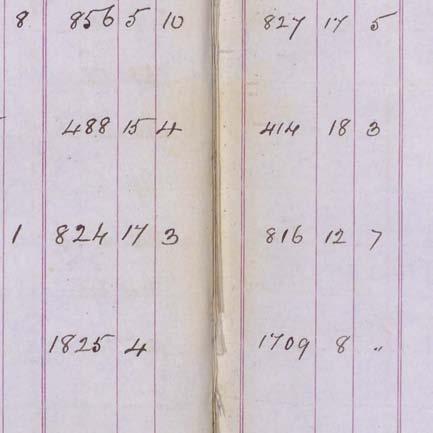 8 856 5 10 827 17 5
488 15 4 414 18 3
1 824 17 3 816 12 7
1825 4 1709 8 "